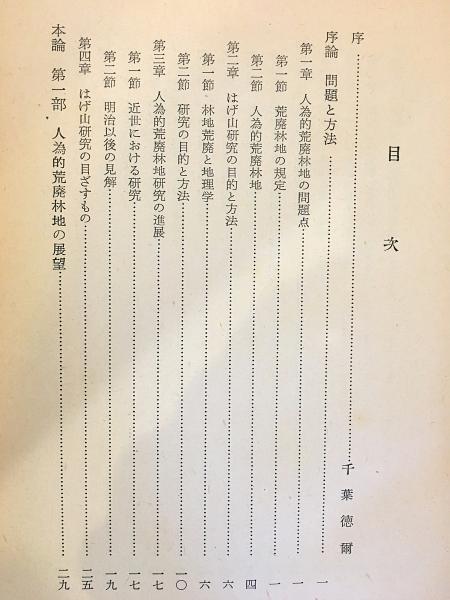 目次
序……千葉徳爾
序論 問題と方法……一
第一章 人為的荒廃林地の問題点……一
第一節 荒廃林地の規定……一
第二節 人為的荒廃林地……四
第二章 はげ山研究の目的と方法……六
第一節 林地荒廃と地理学……六
第二節 研究の目的と方法……一〇
第三章 人為的荒廃林地研究の進展……一七
第一節 近世における研究……一七
第二節 明治以後の見解……一九
第四章 はげ山研究の目ざすもの……二五
本論 第一部 人為的荒廃林地の展望……二九